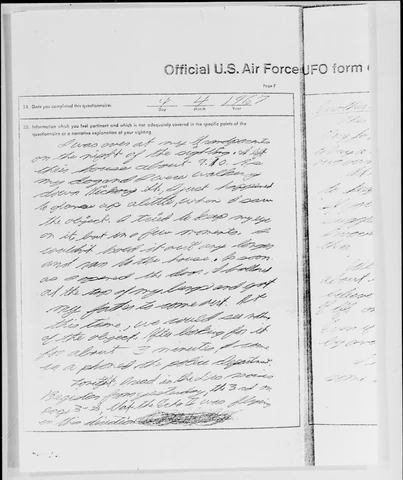 Official U.S. Air Force UFO form
Page 7
24. Date you completed this questionnaire:
4 4 1967
Day Month Year
25. Information which you feel pertinent and which is not adequately covered in the specific points of the
questionnaire or a narrative explanation of your sighting.
I was over at my Grandparents
on the night of the sighting. I left
their house about 9:10. As
my dog and I were walking
down Hickory St. I just happened
to glance up a little, when I saw
the object. I tried to keep my eye
on it, but in a few moments I
couldn't hold it out any longer
and ran to the house. As soon
as I opened the door, I hollered
at the top of my lungs and got
my father to come out. By
this time, we could see nothing
of the object. After looking for it
for about 3 minutes, I came
in & phoned the police Department.
Tonight I read in the Des Moines
Register from yesterday, the 3rd on
page 3-S, that the Echo I was flying
in this direction